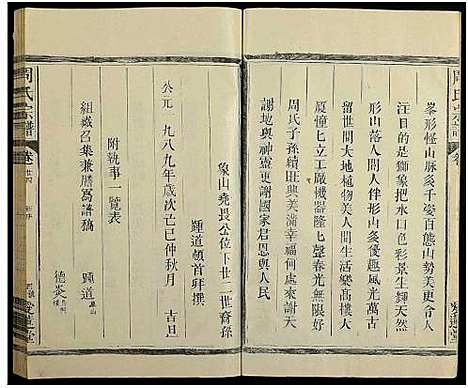 峯形怪山脉多千变百態山勢美更令人
注目的是獅象把水口色彩景生輝天然
形山落人間人伴形山多優趣風光萬古
留世間大地植物美人間生活樂高樓人
廈憧七工廠機器隆七聲春光無限好
周氏子孫績旺興美滿幸福何處來謝天
謝地與神靈更謝國家君恩與人民
象山堯畏公位下廿二世裔孫
鍾道頓首拜撰
公元一九八九年歲次己巳仲秋月 吉旦
附執事一覽表
組織召集兼謄寫譜稿 鍾道
德炎
周氏宗譜
愛蓮堂